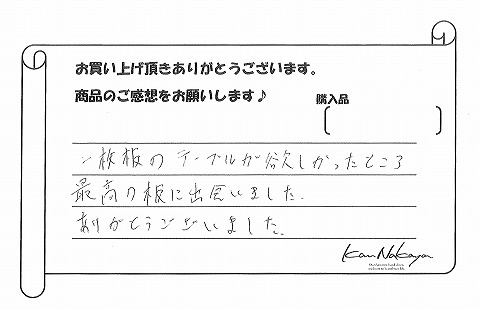 お買い上げ頂きありがとうございます。
商品のご感想をお願いします♪
購入品
一枚板のテーブルが欲しかったところ
最高の板に出会いました.
ありがとうございました.
Kan Nakayama